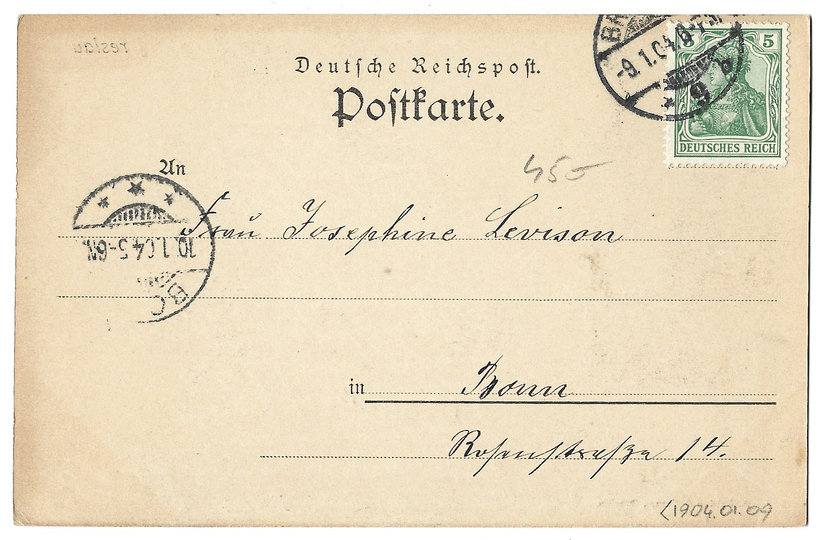 reslau
Deutsche Reichspost.
Postkarte.
BR
-9.1.04.9-
* 9 d
5 5
DEUTSCHES REICH
An
45-
Frau Josephine Levison
10.1.04 5-6N.
BO
in Bonn
Rosenstraße 14.
(1904.01.09